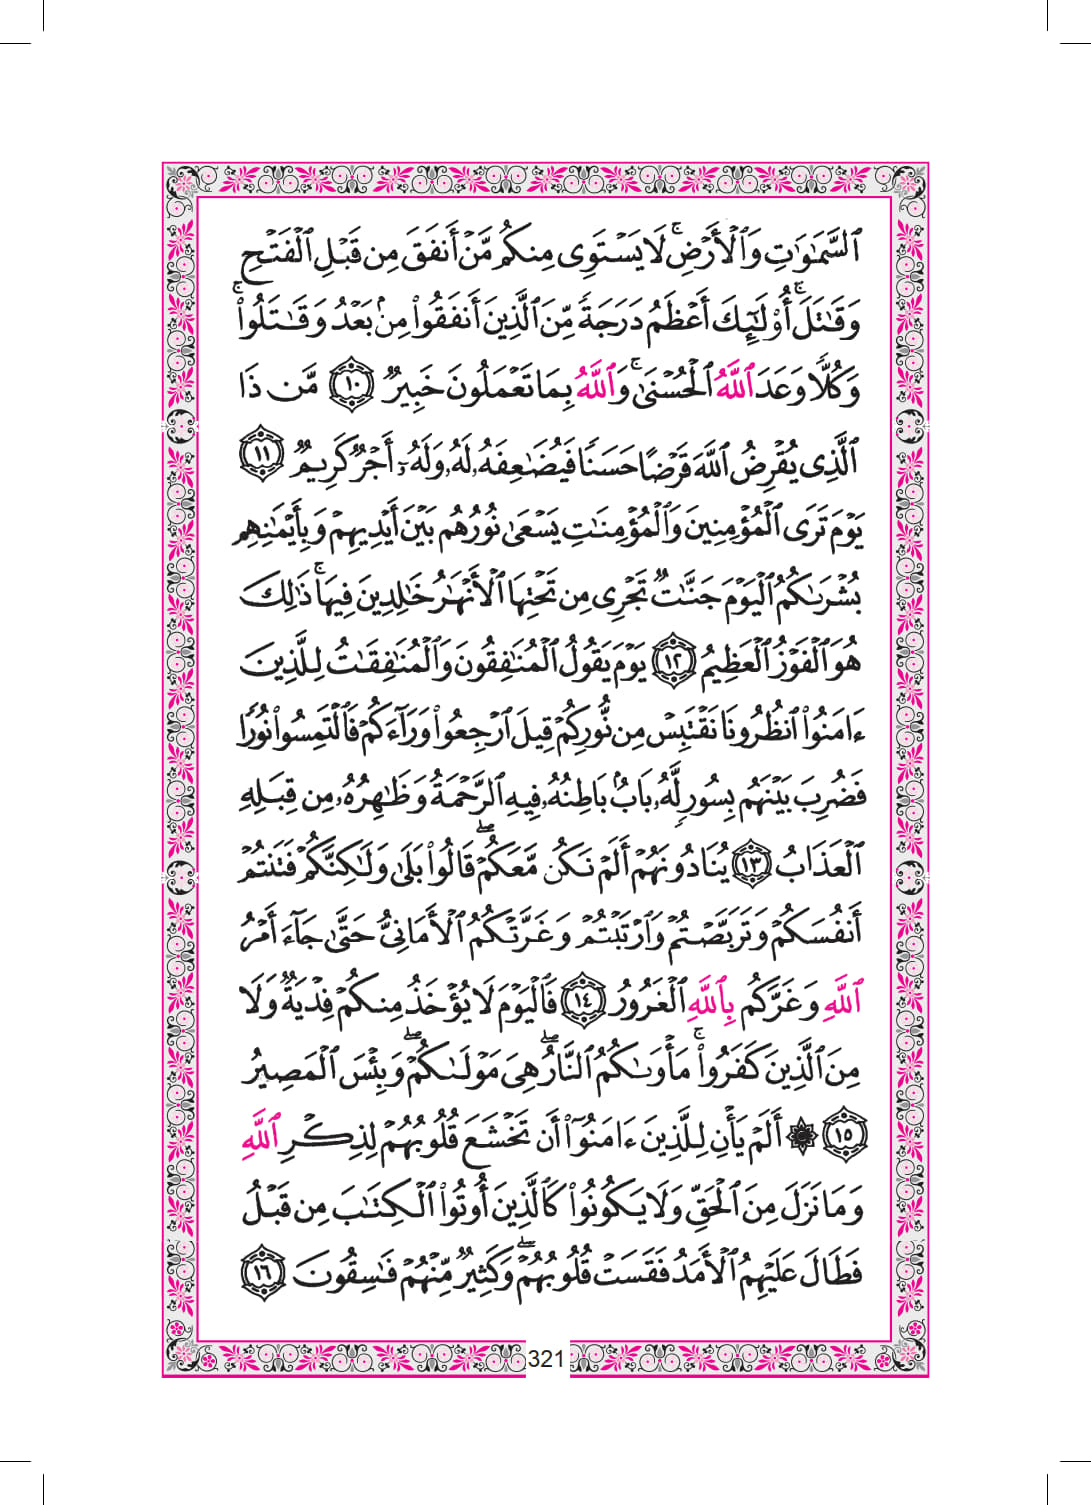 ٱلسَّمَٰوَٰتِ وَٱلْأَرْضِ ۚ لَا يَسْتَوِى مِنكُم مَّنْ أَنفَقَ مِن قَبْلِ ٱلْفَتْحِ
وَقَٰتَلَ ۚ أُو۟لَٰٓئِكَ أَعْظَمُ دَرَجَةً مِّنَ ٱلَّذِينَ أَنفَقُوا۟ مِنۢ بَعْدُ وَقَٰتَلُوا۟ ۚ
وَكُلًّا وَعَدَ ٱللَّهُ ٱلْحُسْنَىٰ ۚ وَٱللَّهُ بِمَا تَعْمَلُونَ خَبِيرٌ ١٠ مَّن ذَا
ٱلَّذِى يُقْرِضُ ٱللَّهَ قَرْضًا حَسَنًا فَيُضَٰعِفَهُۥ لَهُۥ وَلَهُۥٓ أَجْرٌ كَرِيمٌ ١١
يَوْمَ تَرَى ٱلْمُؤْمِنِينَ وَٱلْمُؤْمِنَٰتِ يَسْعَىٰ نُورُهُم بَيْنَ أَيْدِيهِمْ وَبِأَيْمَٰنِهِم
بُشْرَىٰكُمُ ٱلْيَوْمَ جَنَّٰتٌ تَجْرِى مِن تَحْتِهَا ٱلْأَنْهَٰرُ خَٰلِدِينَ فِيهَا ۚ ذَٰلِكَ
هُوَ ٱلْفَوْزُ ٱلْعَظِيمُ ١٢ يَوْمَ يَقُولُ ٱلْمُنَٰفِقُونَ وَٱلْمُنَٰفِقَٰتُ لِلَّذِينَ
ءَامَنُوا۟ ٱنظُرُونَا نَقْتَبِسْ مِن نُّورِكُمْ قِيلَ ٱرْجِعُوا۟ وَرَآءَكُمْ فَٱلْتَمِسُوا۟ نُورًا
فَضُرِبَ بَيْنَهُم بِسُورٍ لَّهُۥ بَابٌۢ بَاطِنُهُۥ فِيهِ ٱلرَّحْمَةُ وَظَٰهِرُهُۥ مِن قِبَلِهِ
ٱلْعَذَابُ ١٣ يُنَادُونَهُمْ أَلَمْ نَكُن مَّعَكُمْ ۖ قَالُوا۟ بَلَىٰ وَلَٰكِنَّكُمْ فَتَنتُمْ
أَنفُسَكُمْ وَتَرَبَّصْتُمْ وَٱرْتَبْتُمْ وَغَرَّتْكُمُ ٱلْأَمَانِىُّ حَتَّىٰ جَآءَ أَمْرُ
ٱللَّهِ وَغَرَّكُم بِٱللَّهِ ٱلْغَرُورُ ١٤ فَٱلْيَوْمَ لَا يُؤْخَذُ مِنكُمْ فِدْيَةٌ وَلَا
مِنَ ٱلَّذِينَ كَفَرُوا۟ ۚ مَأْوَىٰكُمُ ٱلنَّارُ ۖ هِىَ مَوْلَىٰكُمْ ۖ وَبِئْسَ ٱلْمَصِيرُ
١٥ ۞ أَلَمْ يَأْنِ لِلَّذِينَ ءَامَنُوٓا۟ أَن تَخْشَعَ قُلُوبُهُمْ لِذِكْرِ ٱللَّهِ
وَمَا نَزَلَ مِنَ ٱلْحَقِّ وَلَا يَكُونُوا۟ كَٱلَّذِينَ أُوتُوا۟ ٱلْكِتَٰبَ مِن قَبْلُ
فَطَالَ عَلَيْهِمُ ٱلْأَمَدُ فَقَسَتْ قُلُوبُهُمْ ۖ وَكَثِيرٌ مِّنْهُمْ فَٰسِقُونَ ١٦
321